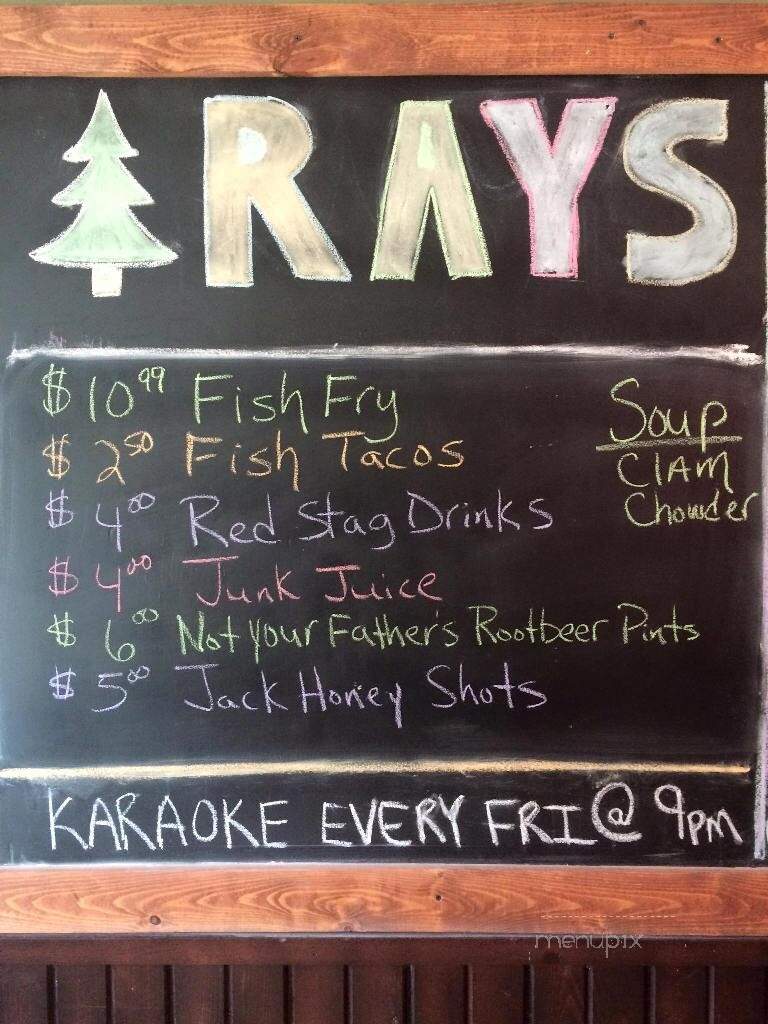 RAYS
$10.99 Fish Fry
$2.50 Fish Tacos
$4.00 Red Stag Drinks
$4.00 Junk Juice
$6.00 Not your Father's Rootbeer Pints
$5.00 Jack Honey Shots
Soup
ClAM
Chowder
KARAOKE EVERY FRI @ 9pm
menupix